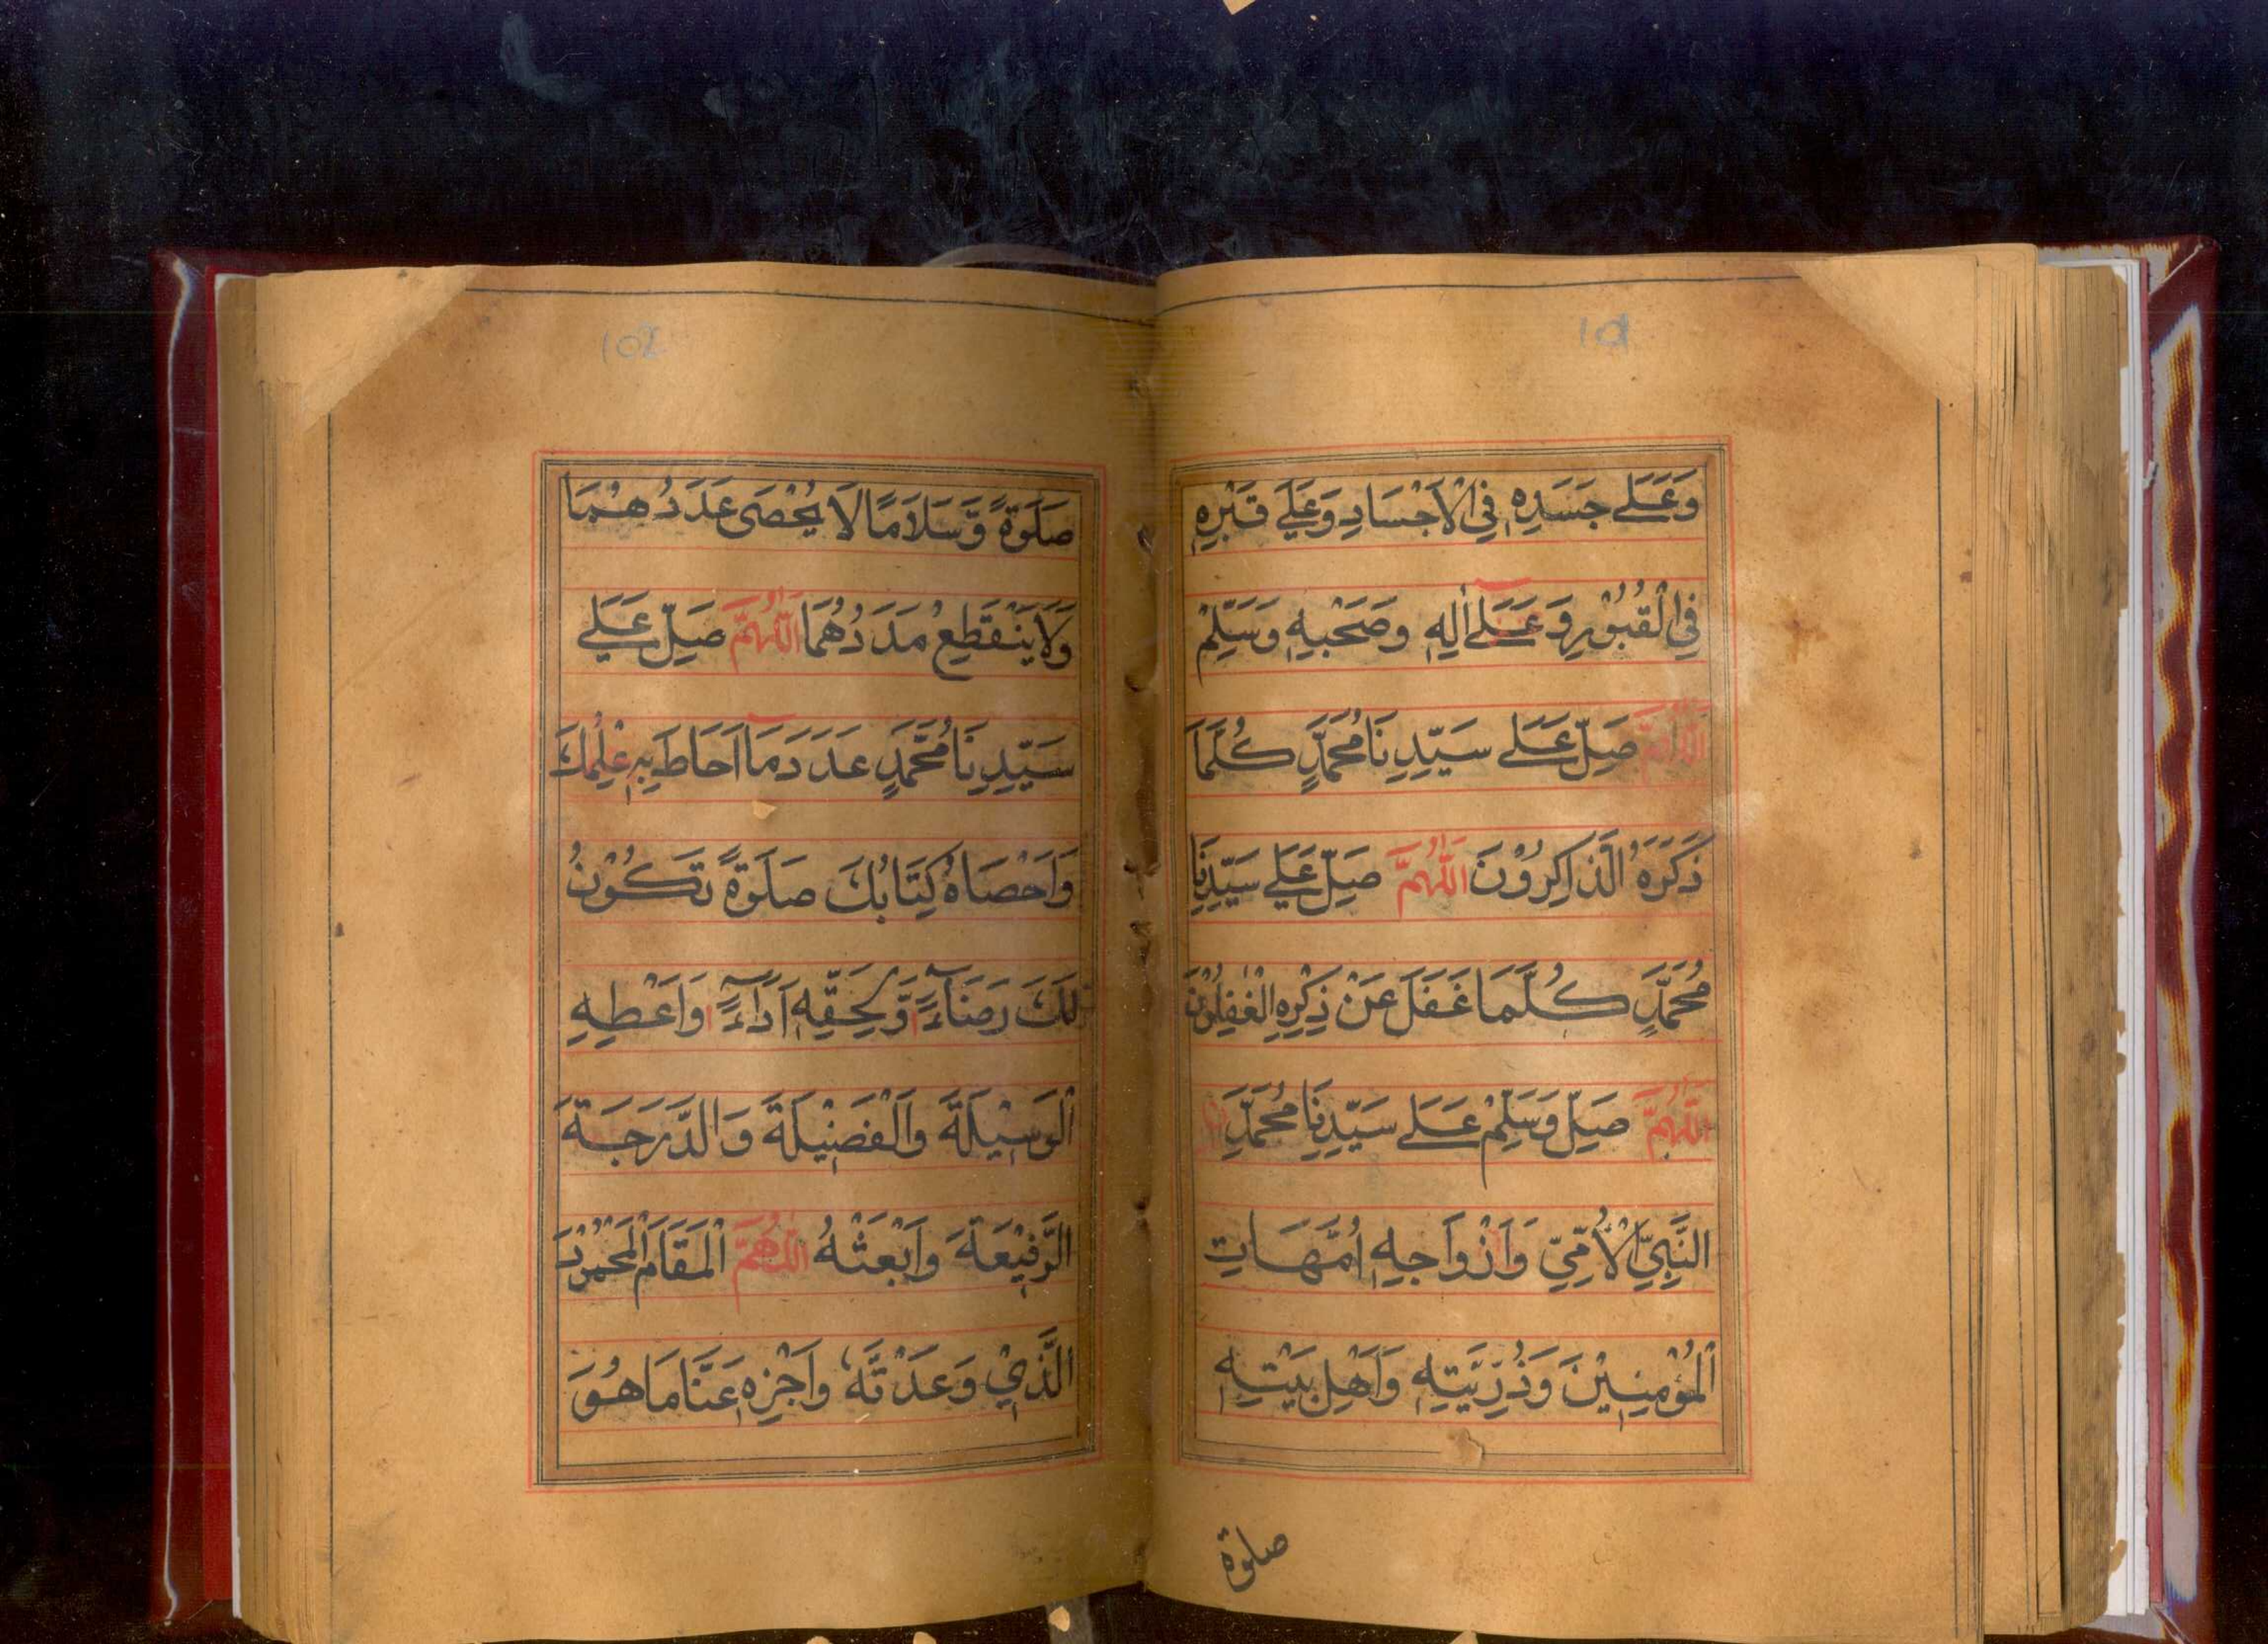 101
وَعَلَى جَسَدِهِ فِي الْاَجْسَادِ وَعَلَى قَبْرِهِ
فِي الْقُبُوْرِ وَعَلَى اٰلِهِ وَصَحْبِهِ وَسَلِّمْ
اَللّٰهُمَّ صَلِّ عَلَى سَيِّدِنَا مُحَمَّدٍ كُلَّمَا
ذَكَرَهُ الذَّاكِرُوْنَ اَللّٰهُمَّ صَلِّ عَلَى سَيِّدِنَا
مُحَمَّدٍ كُلَّمَا غَفَلَ عَنْ ذِكْرِهِ الْغٰفِلُوْنَ
اَللّٰهُمَّ صَلِّ وَسَلِّمْ عَلَى سَيِّدِنَا مُحَمَّدِ
النَّبِيِّ الْاُمِّيِّ وَاَزْوَاجِهِ اُمَّهَاتِ
الْمُؤْمِنِيْنَ وَذُرِّيَّتِهِ وَاَهْلِ بَيْتِهِ
صلوة
102
صَلَوةً وَّسَلَامًا لَا يُحْصَى عَدَدُهُمَا
وَلَا يَنْقَطِعُ مَدَدُهُمَا اَللّٰهُمَّ صَلِّ عَلَى
سَيِّدِنَا مُحَمَّدٍ عَدَدَ مَا اَحَاطَ بِهِ عِلْمُكَ
وَاَحْصَاهُ كِتَابُكَ صَلَوةً تَكُوْنُ
لَكَ رِضَاءً وَّلِحَقِّهِ اَدَاءً وَاَعْطِهِ
الْوَسِيْلَةَ وَالْفَضِيْلَةَ وَالدَّرَجَةَ
الرَّفِيْعَةَ وَابْعَثْهُ اَللّٰهُمَّ الْمَقَامَ الْمَحْمُوْدَ
الَّذِيْ وَعَدْتَّهُ وَاَجْزِهِ عَنَّا مَا هُوَ